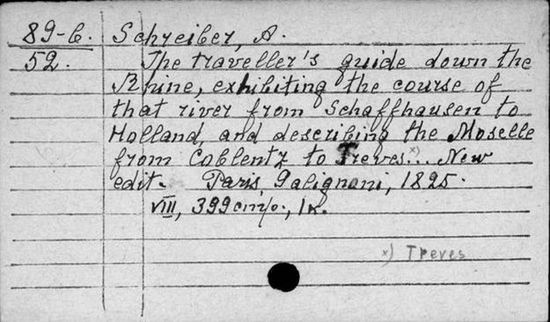 89-б. Schreiber, A.
52. The traveller's guide down the
Rhine, exhibiting the course of
that river from Schaffhausen to
Holland, and describing the Moselle
from Coblentz to Treves x)... New
edit. Paris, Galignani, 1825.
VIII, 399 стр., 1 к.
x) Treves